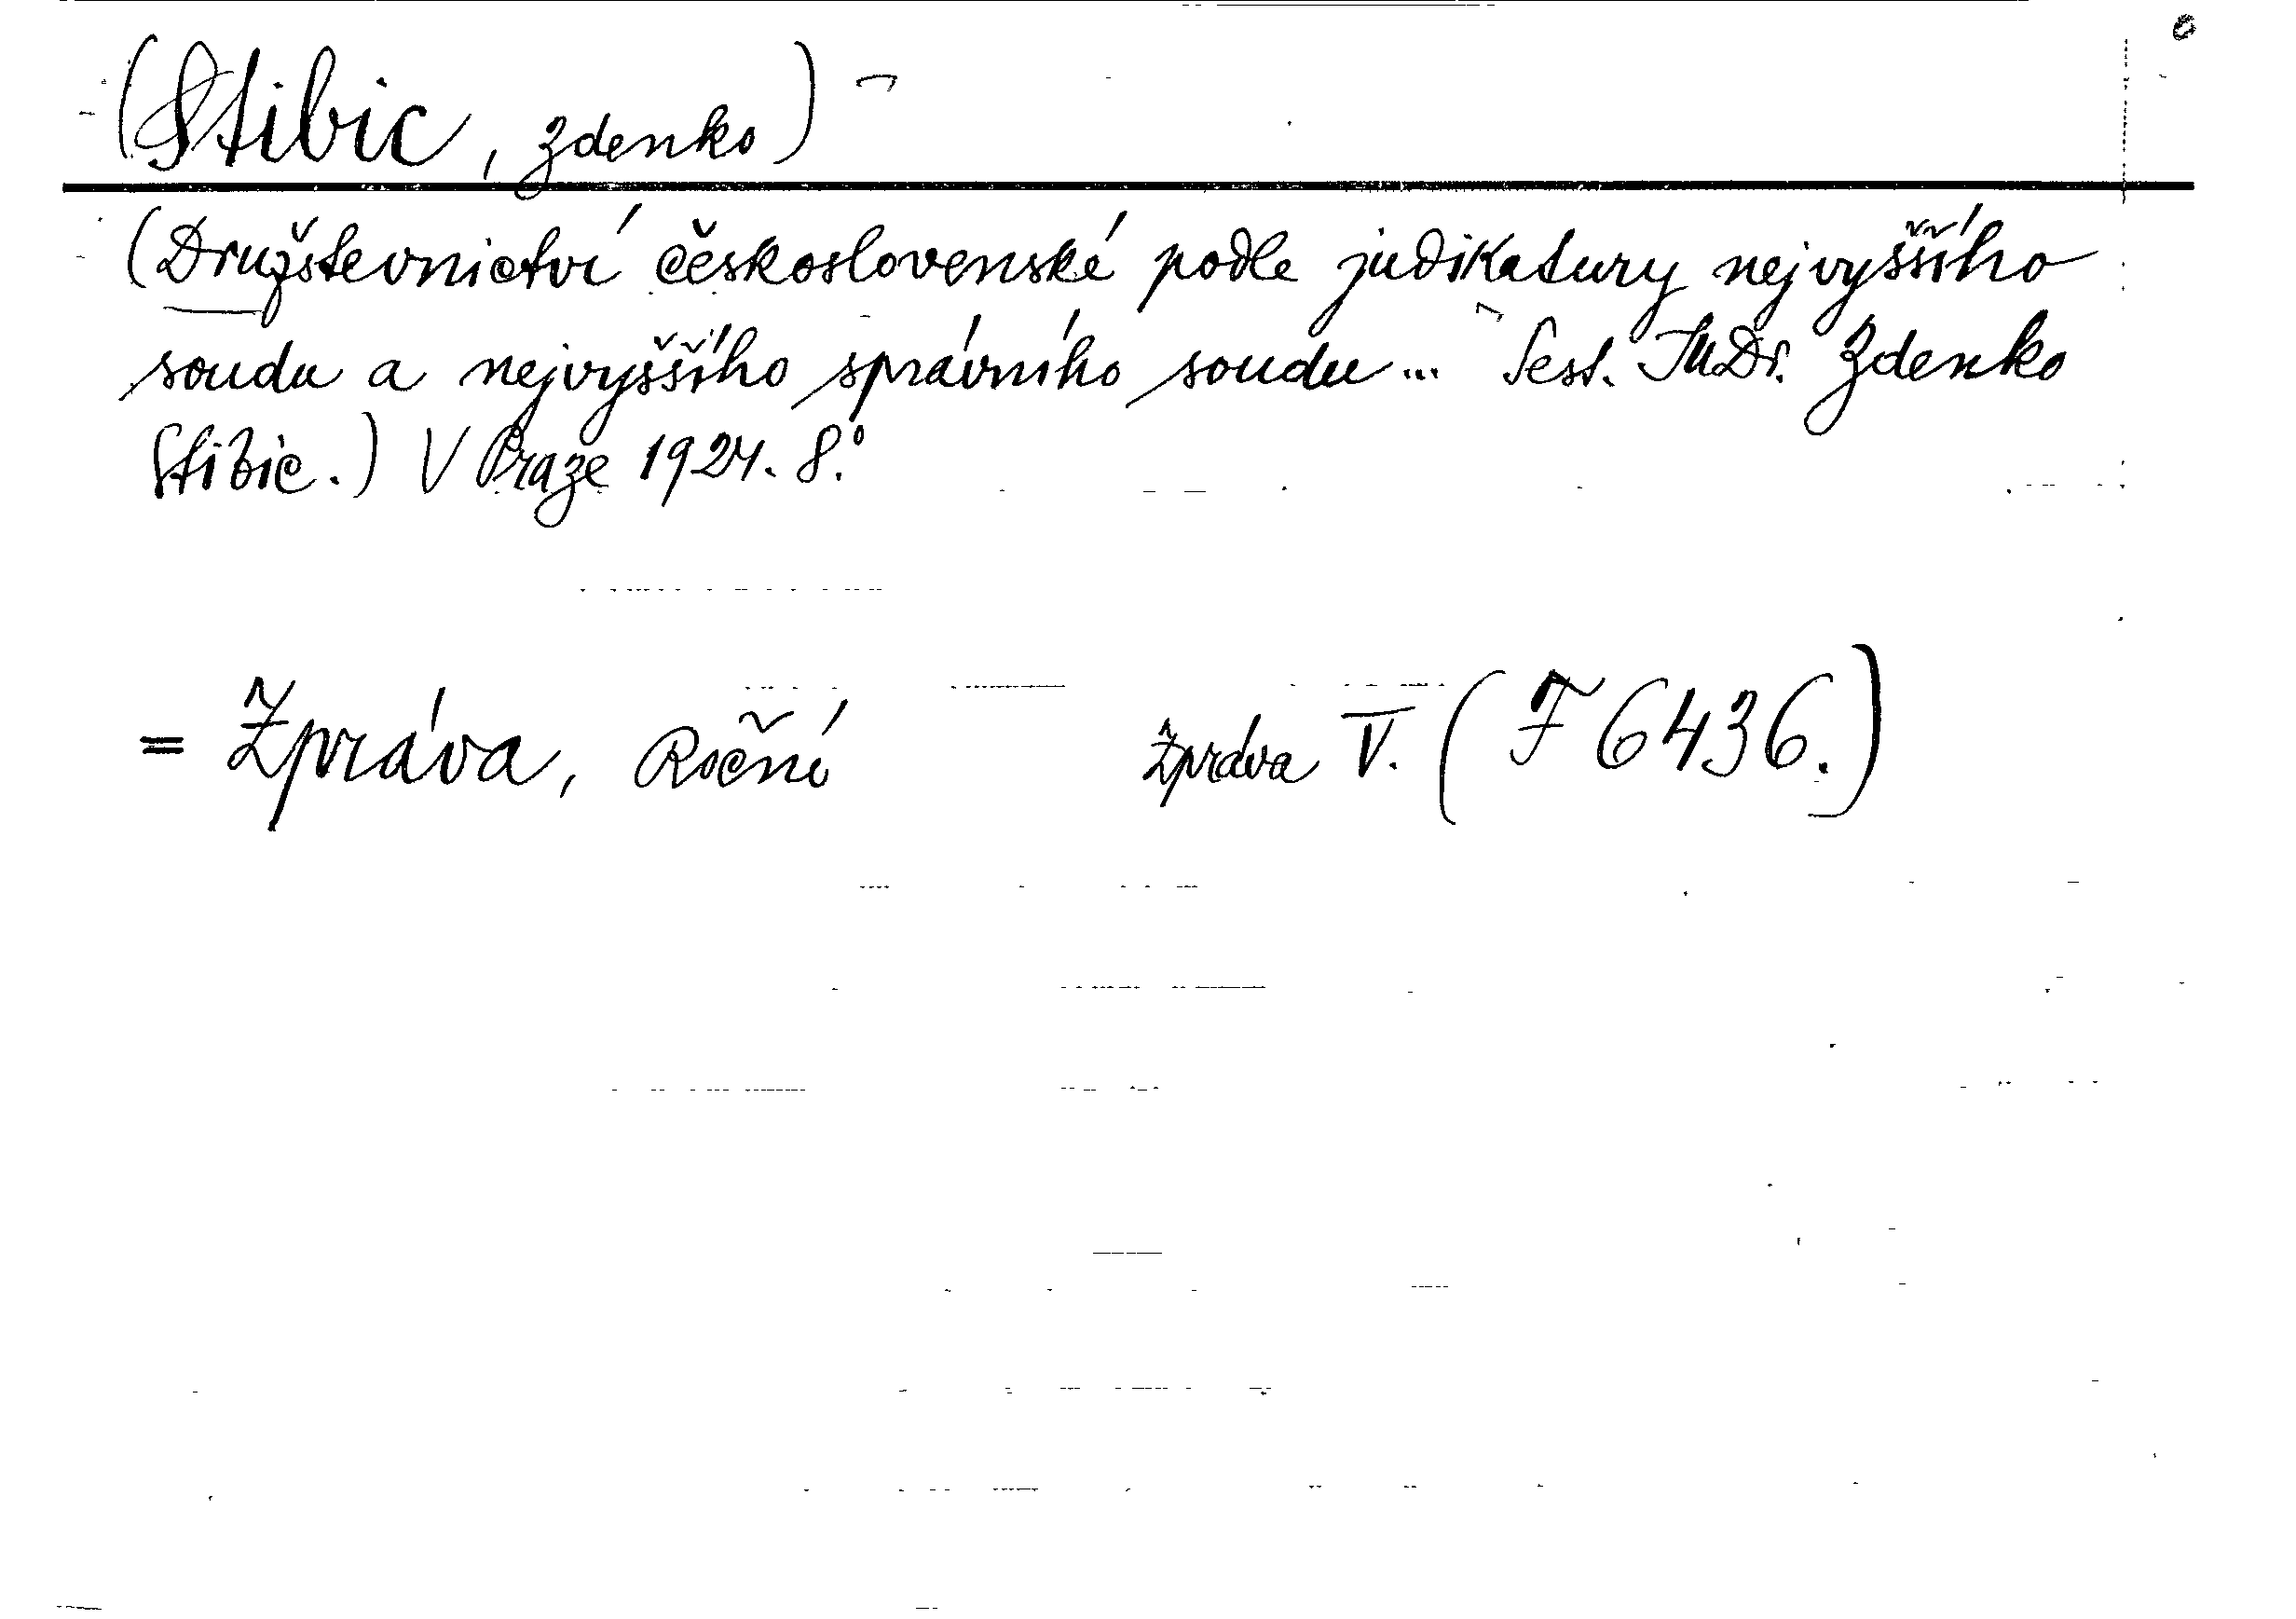 (Stibic, Zdenko)
(Družstevnictví československé podle judikatury nejvyššího
soudu a nejvyššího správního soudu... Sest. JUDr. Zdenko
Stibic.) V Praze 1924. 8.°
= Zpráva, Roční zpráva V. (F 6436.)